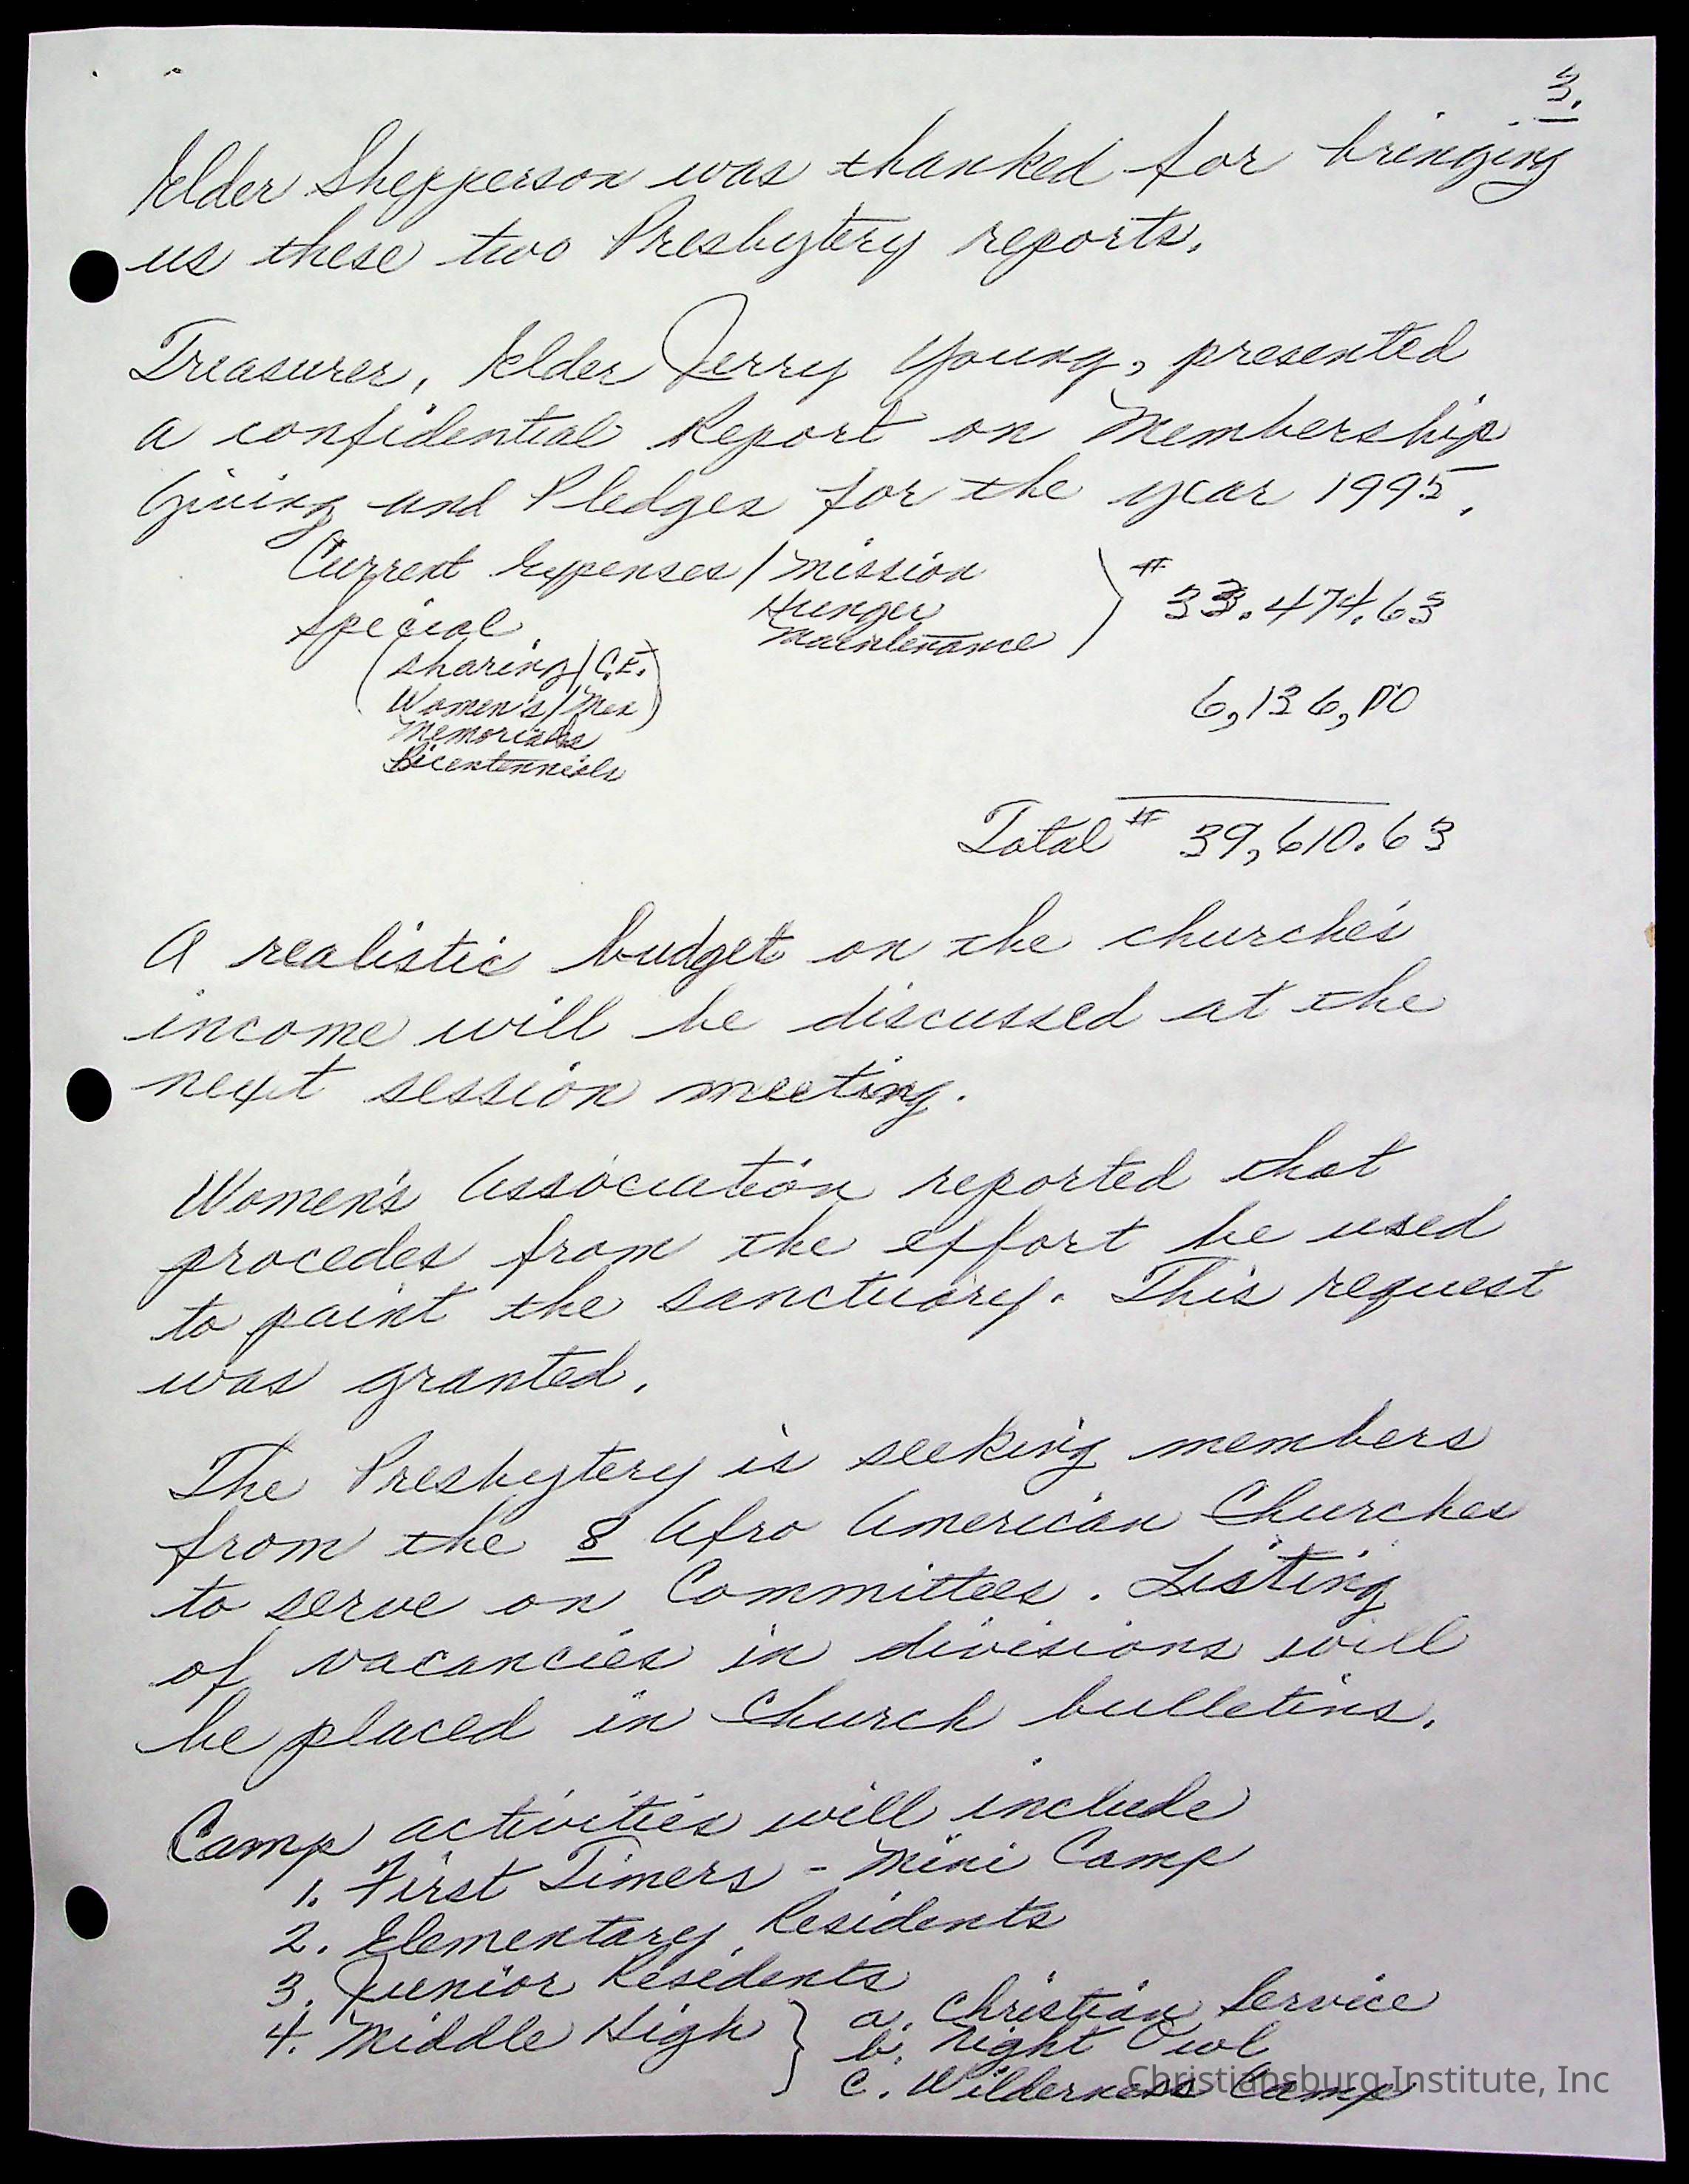 3.
Elder Shepperson was thanked for bringing
us these two Presbytery reports.
Treasurer, Elder Jerry Young, presented
a confidential Report on Membership
Giving and Pledges for the year 1995.
Current Expenses / Mission
Hunger
Maintenance
} $ 33.474.63
Special
(Sharing / C.E.
Women's / Men)
Memorials
Bicentennials
6,136,00
Total $ 39,610.63
A realistic budget on the churche's
income will be discussed at the
next session meeting.
Women's Association reported that
procedes from the effort be used
to paint the sanctuary. This request
was granted.
The Presbytery is seeking members
from the 8 Afro American Churches
to serve on Committees. Listing
of vacancies in divisions will
be placed in Church bulletins.
Camp activities will include
1. First Timers - Mini Camp
2. Elementary Residents
3. Junior Residents
4. Middle High } a. Christian Service
b. Night Owl
c. Wilderness Camp
Christiansburg Institute, Inc